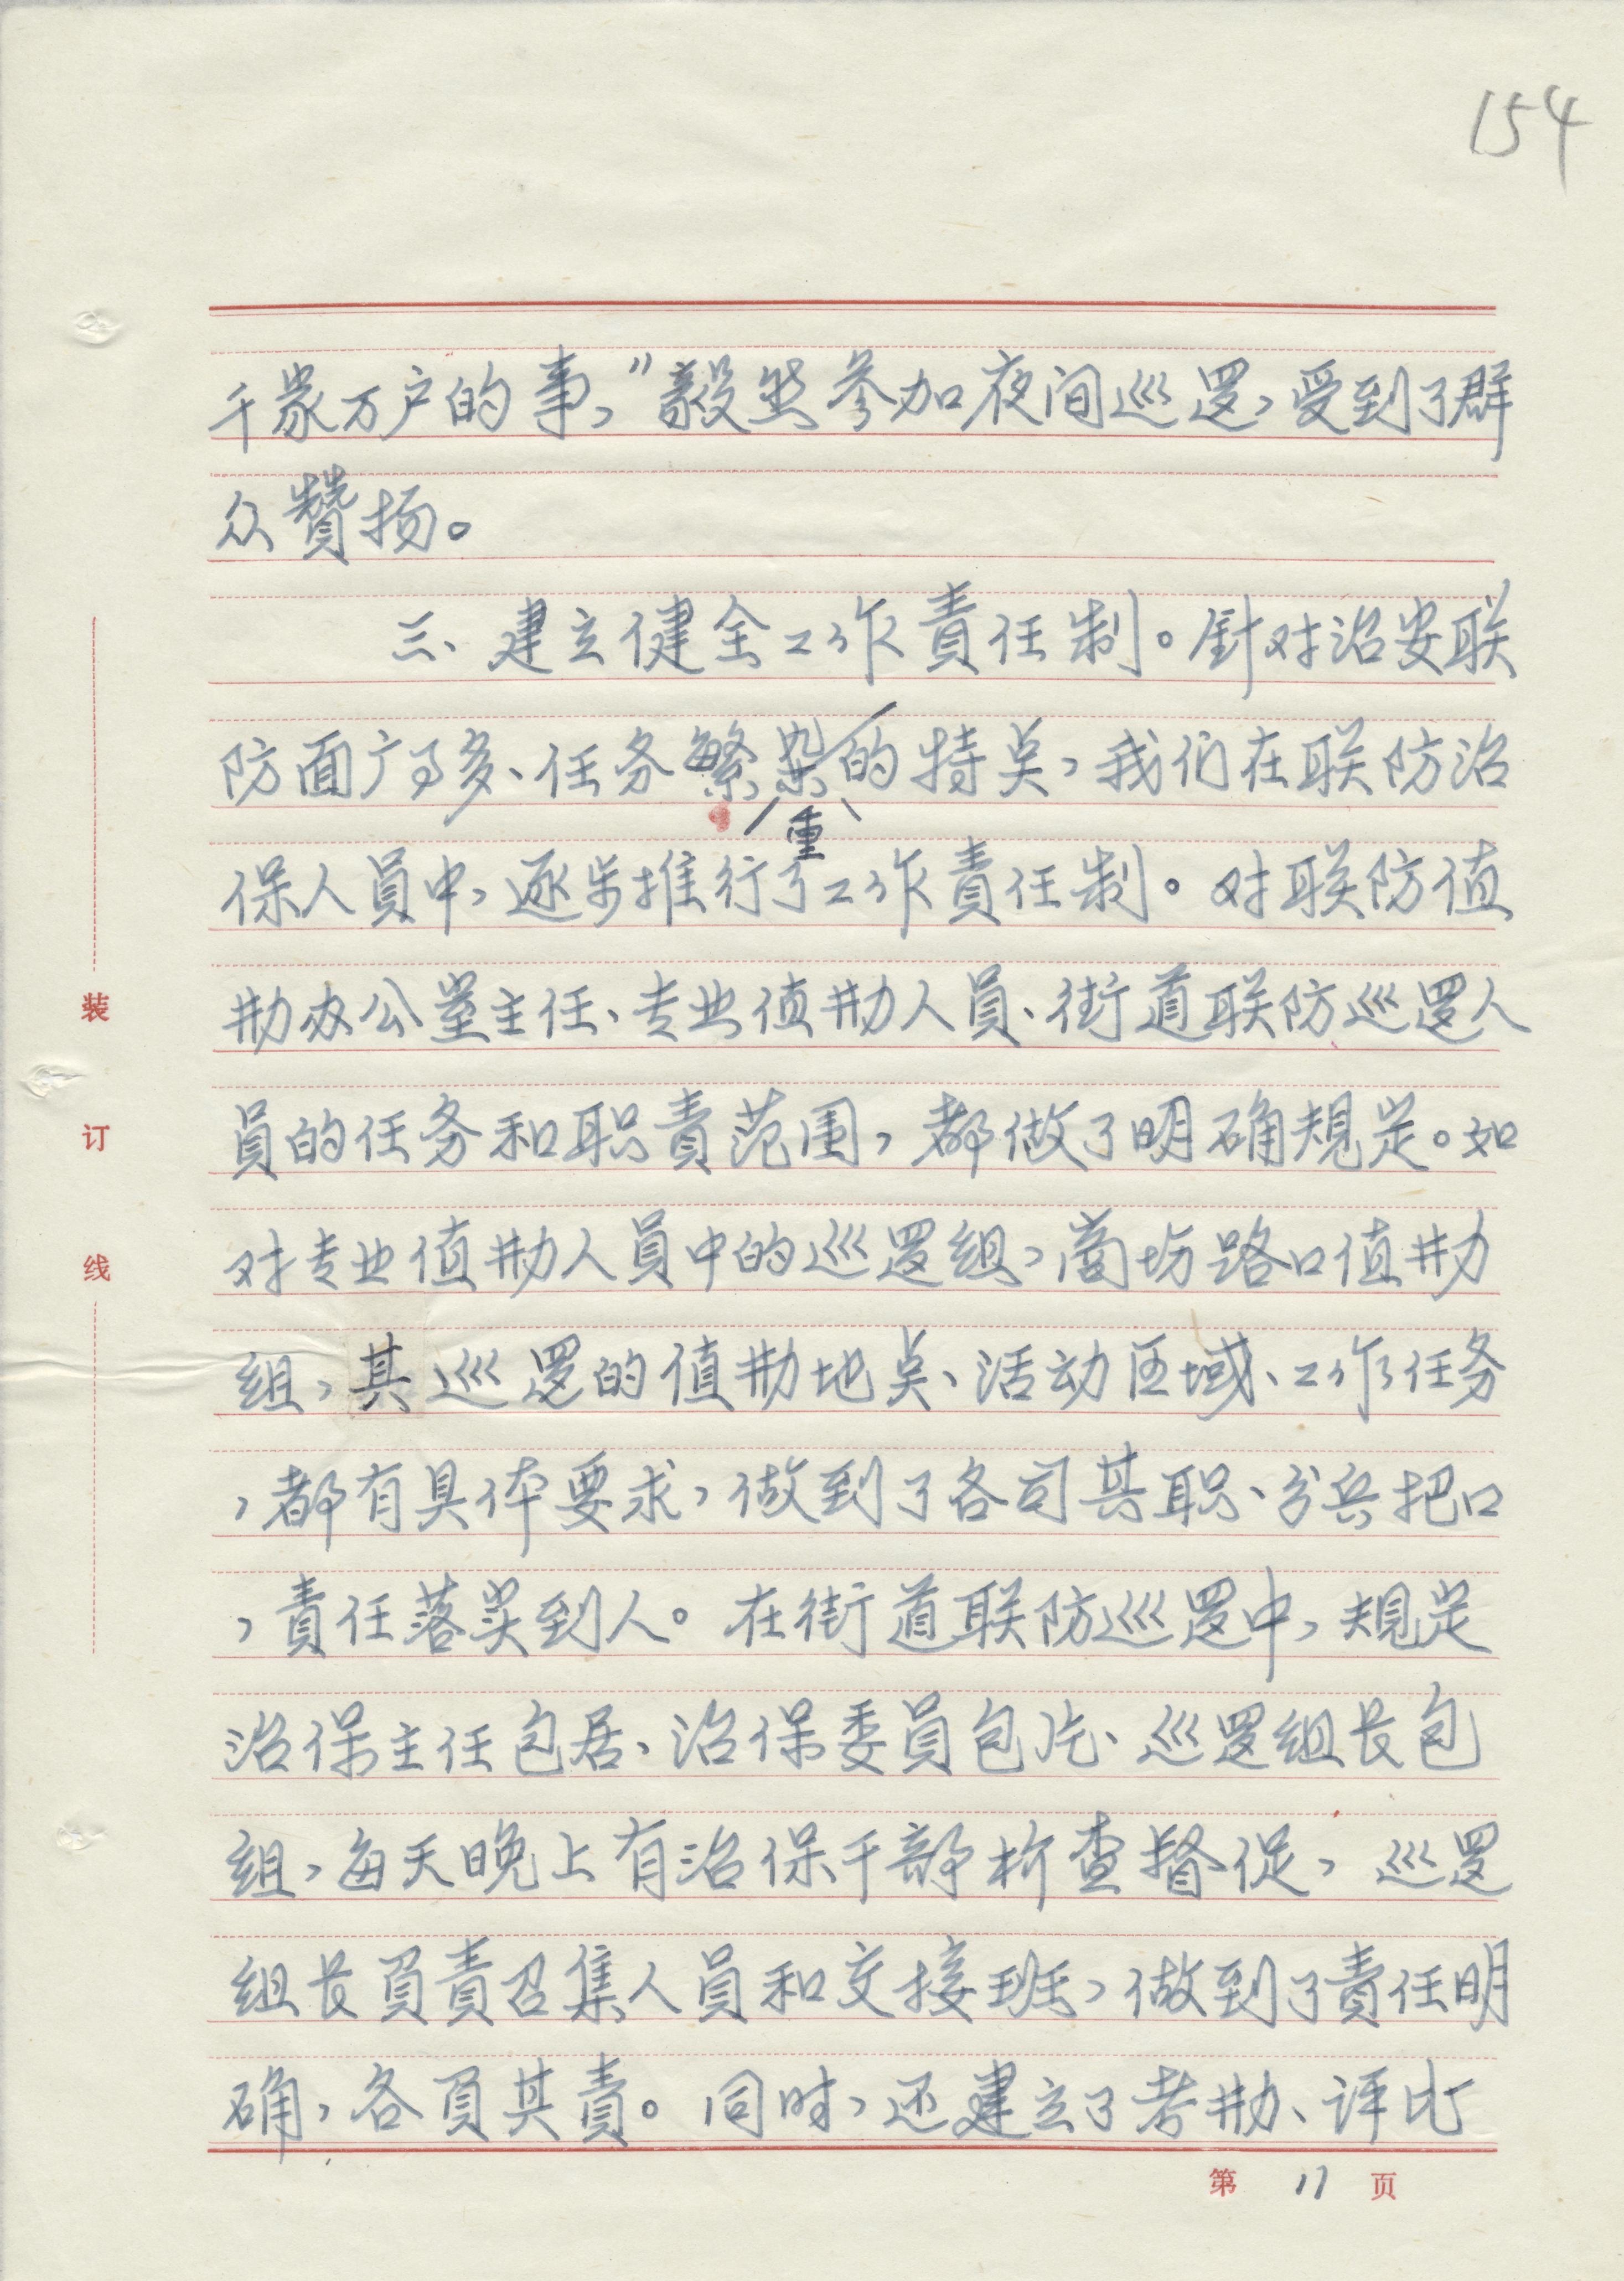 154
千家万户的事，”毅然参加夜间巡逻，受到了群
众赞扬。
三、建立健全工作責任制。針对治安联
防面广多、任务繁杂的特点，我们在联防治
重
保人員中，逐步推行了工作責任制。对联防值
勤办公室主任、专业值勤人員、街道联防巡逻人
員的任务和职責范围，都做了明确規定。如
对专业值勤人員中的巡逻組，商场路口值勤
組，其巡逻的值勤地点、活动区域、工作任务
，都有具体要求，做到了各司其职、分兵把口
，責任落实到人。在街道联防巡逻中，規定
治保主任包居、治保委員包片、巡逻組长包
組，每天晚上有治保干部检查督促，巡逻
組长負責召集人員和交接班，做到了責任明
确，各負其責。同时，还建立了考勤、评比
装
订
线
第 17 页